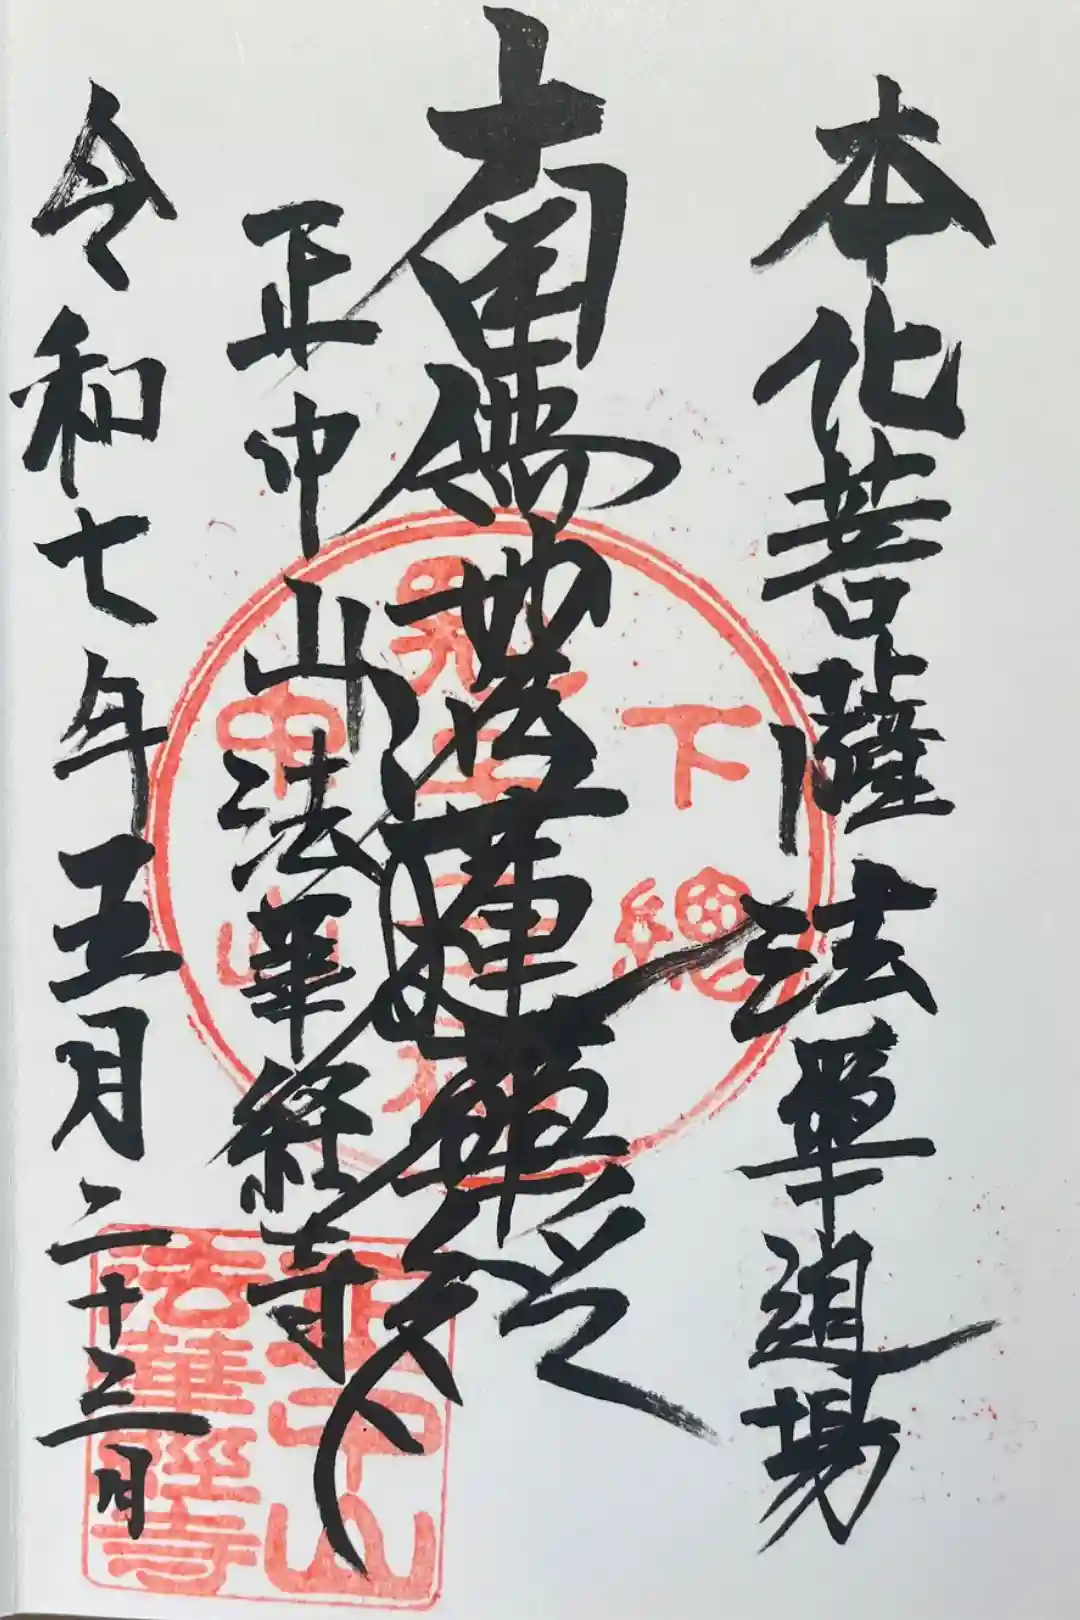 本化菩薩法華道場
南無妙法蓮華経
正中山法華経寺
令和七年五月二十三日
下總
中山
正中山
法華經寺